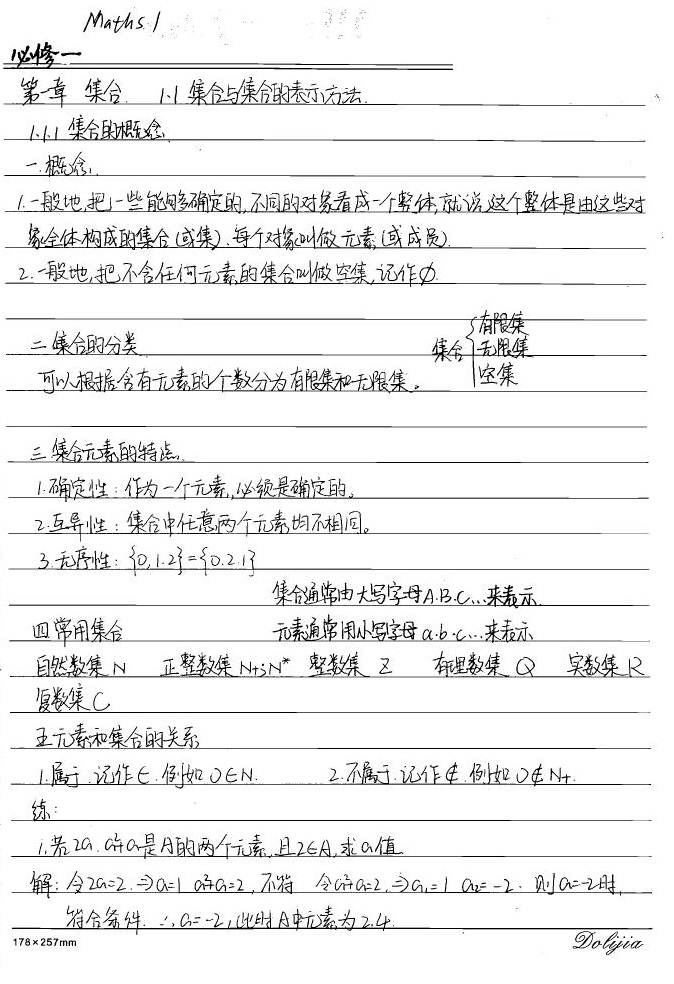 Maths 1
必修一
第一章 集合. 1.1 集合与集合的表示方法.
1.1.1 集合的概念.
一.概念.
1.一般地,把一些能够确定的,不同的对象看成一个整体,就说这个整体是由这些对
象全体构成的集合(或集).每个对象叫做元素(或成员).
2.一般地,把不含任何元素的集合叫做空集,记作∅.
二 集合的分类
集合{有限集
无限集
空集
可以根据含有元素的个数分为有限集和无限集。
三 集合元素的特点.
1.确定性:作为一个元素,必须是确定的。
2.互异性:集合中任意两个元素均不相同。
3.无序性:{0,1.2}={0.2.1}
集合通常由大写字母A.B.C...来表示.
四 常用集合 元素通常用小写字母a.b.c...来表示
自然数集 N 正整数集 N+;N* 整数集 Z 有理数集 Q 实数集 R
复数集 C
五 元素和集合的关系
1.属于.记作∈.例如0∈N. 2.不属于.记作∉.例如0∉N+.
练:
1.若2a.a²+a是A的两个元素,且2∈A,求a值
解:令2a=2.⇒a=1 a²+a=2,不符 令a²+a=2,⇒a₁=1 a₂=-2. 则a=-2时,
符合条件.∴a=-2,此时A中元素为2.4.
178×257mm
Dolijia